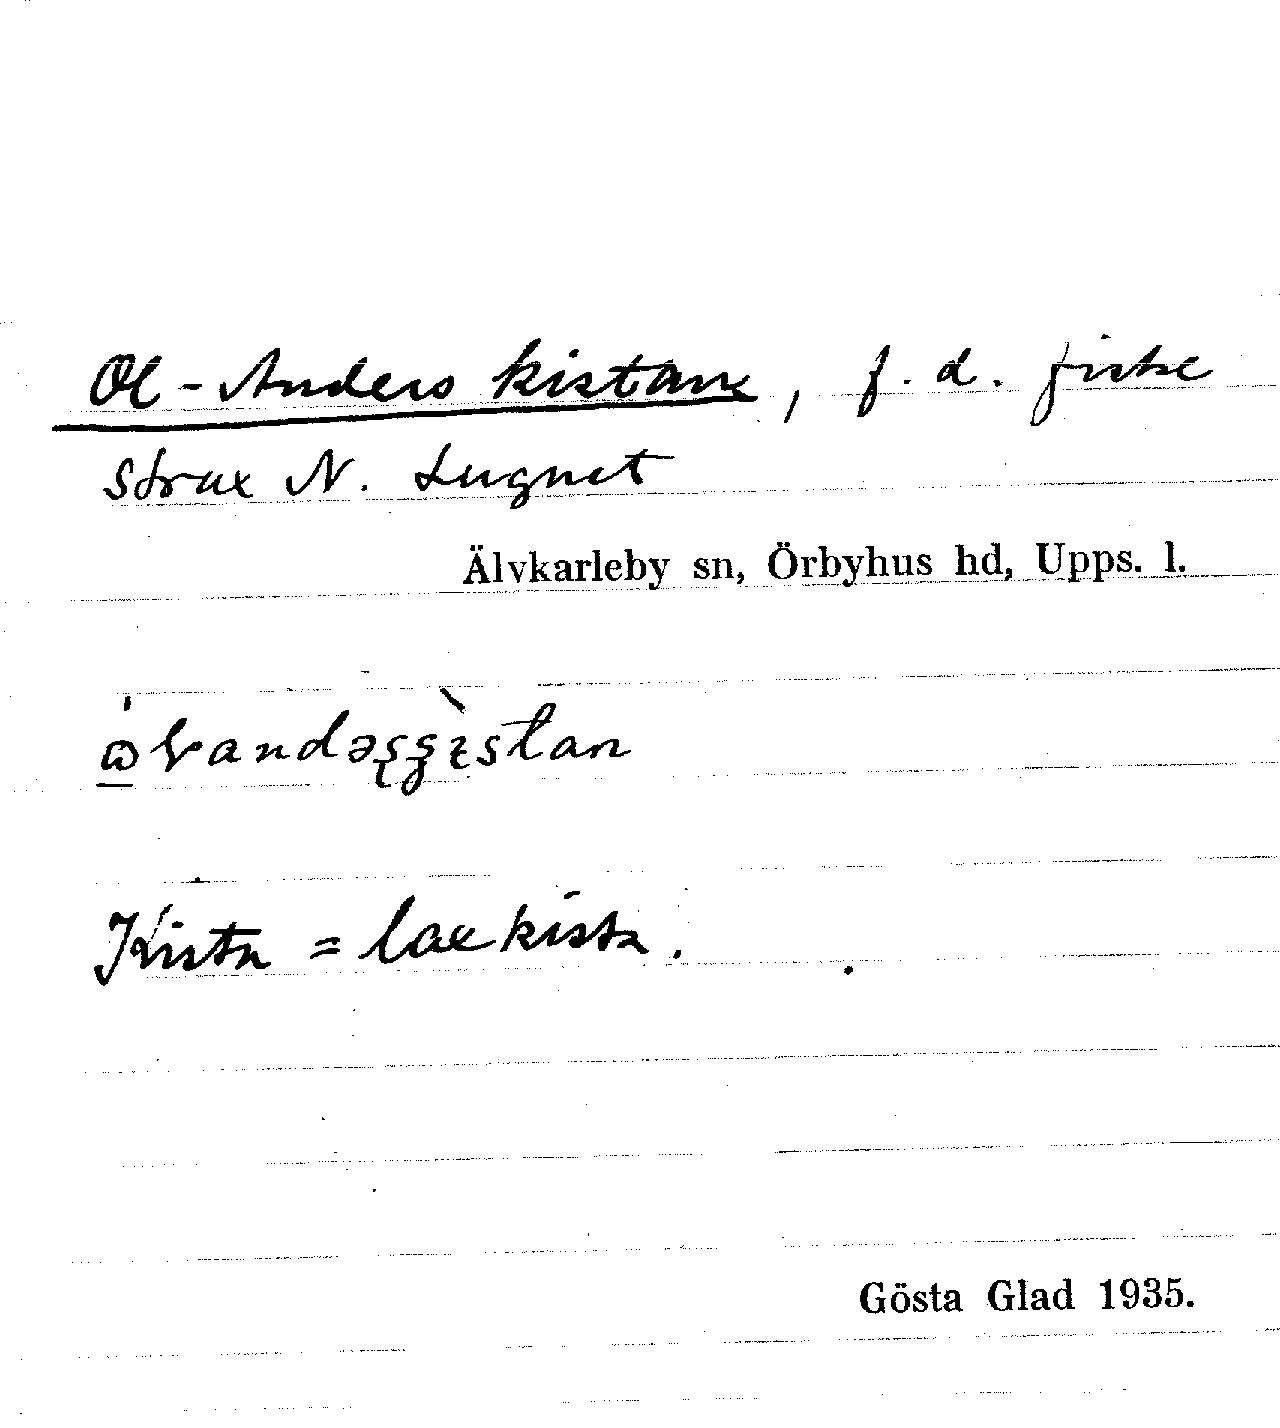 Ol-Anders kistan, f. d. fiske
strax N. Lugnet
Älvkarleby sn, Örbyhus hd, Upps. l.
Kista = laxkista.
Gösta Glad 1935.